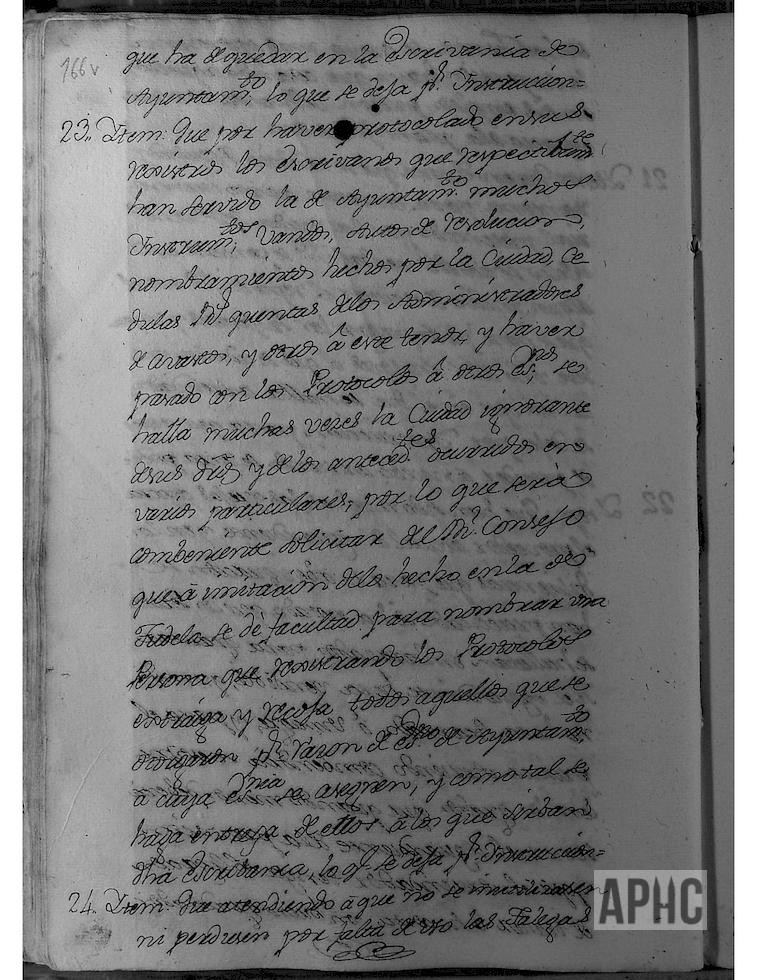 166v
que ha de quedar en la Escrivania de
Ayuntam.to, lo que se deja p.r Instruccion=
23.. Item: Que por haver protocolado en sus
rexistros los Escrivanos que respectivam.te
han servido la de Ayuntam.to muchos
Instrum.tos, Vandos, Autos de resolucion,
nombramientos hechos por la Ciudad, Ce
dulas R.s quentas de los Administradores
de avastos, y otros à este tenor, y haver
pasado con los Protocolos à otros Es.nos, se
halla muchas vezes la Ciudad ignorante
de sus dr̃os y de los anteced.tes ocurridos en
varios particulares, por lo que serà
combeniente solicitar del R.l Consejo
que à imitacion de lo hecho en la de
Tudela se dè facultad para nombrar una
Persona que rexistrando los Protocolos
extraiga y recoja todos aquellos que se
otorgaron p.r razon de es.no de Ayuntam.to
a cuya Es.nia se asegnen, y como tal se
haga entrega de ellos a los que sirban
dh̃a Escribania, lo q.e se deja p.r Instruccion=
24.. Item: Que atendiendo à que no se inutilizasen
ni perdiesen por falta de uso las Talegas
APHC